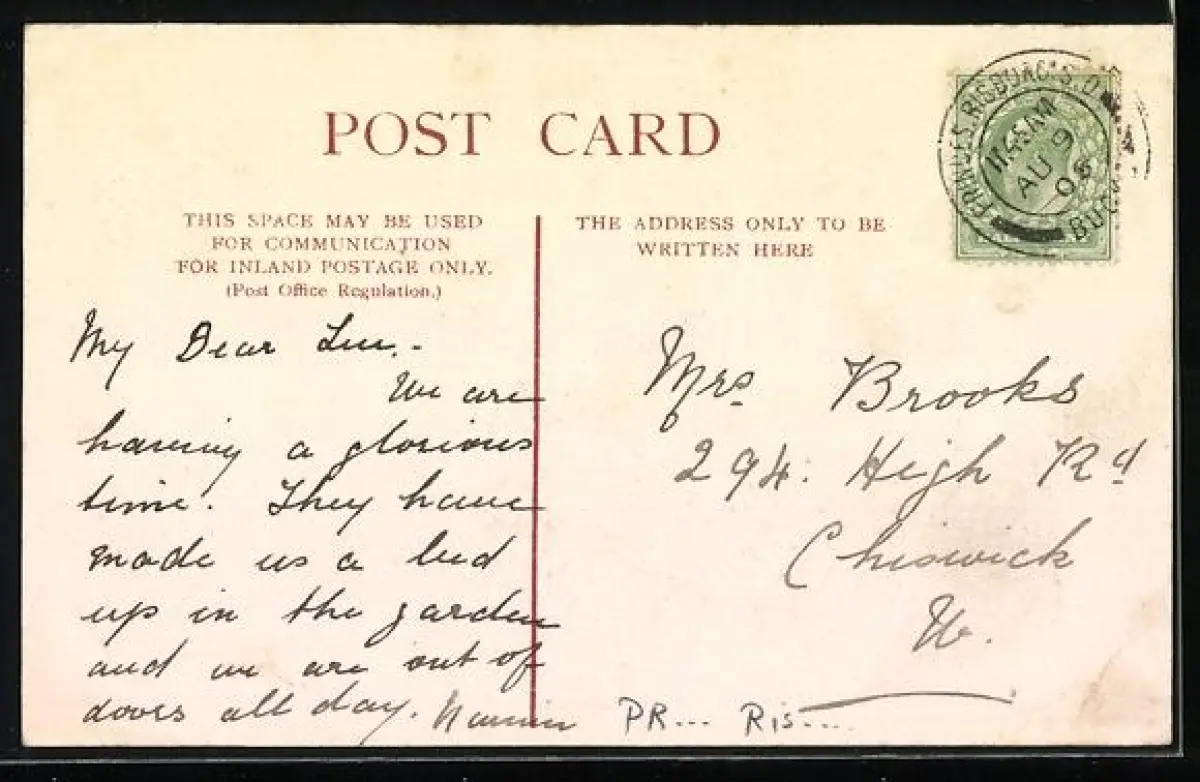 POST CARD
THIS SPACE MAY BE USED
FOR COMMUNICATION
FOR INLAND POSTAGE ONLY.
(Post Office Regulation.)
THE ADDRESS ONLY TO BE
WRITTEN HERE
RISBORO' S.O
11.45AM
AU 9
06
BUCKS
My Dear
We are
having a glorious
time. They have
made us a bed
up in the garden
and we are out of
doors all day.
Mrs Brooks
294. High Rd
Chiswick
W.
PR... Ris....